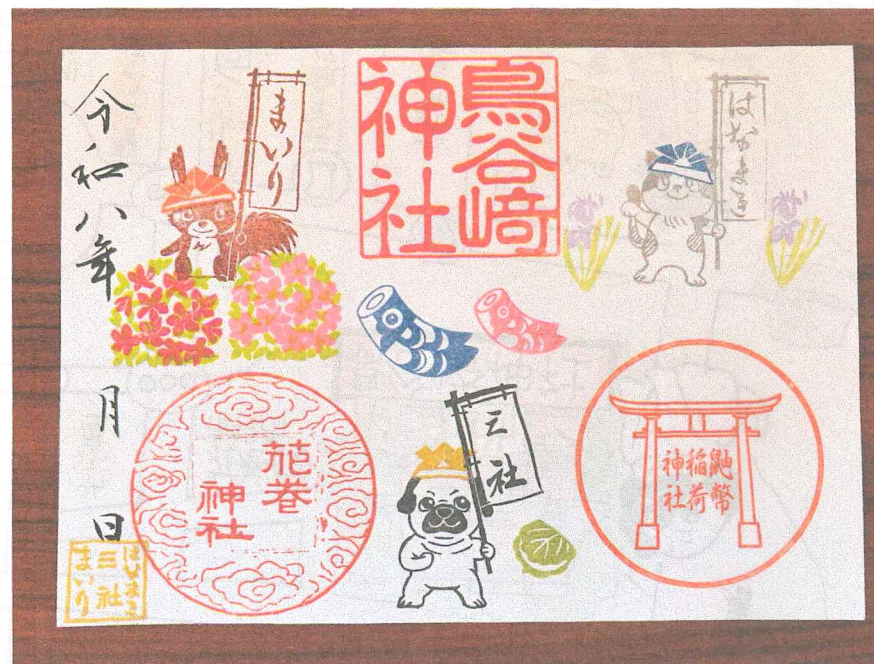 令和八年
月
日
まいり
鳥谷崎
神社
はなまき
花巻
神社
三社
鼬幣
稲荷
神社
はなまき
三社
まいり